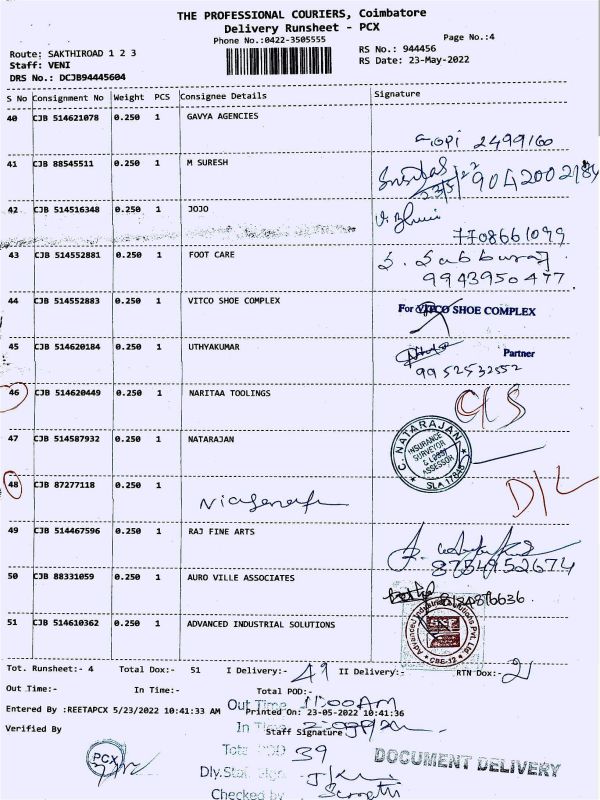 THE PROFESSIONAL COURIERS, Coimbatore
Delivery Runsheet - PCX
Phone No.:0422-3505555
Page No.:4
Route: SAKTHIROAD 1 2 3
RS No.: 944456
Staff: VENI
RS Date: 23-May-2022
DRS No.: DCJB94445604
S No Consignment No Weight PCS Consignee Details Signature
40 CJB 514621078 0.250 1 GAVYA AGENCIES
Gopi 2499160
41 CJB 88545511 0.250 1 M SURESH
9042002184
42 CJB 514516348 0.250 1 JOJO
7708661099
43 CJB 514552881 0.250 1 FOOT CARE
S. Sabburaj
9943950477
44 CJB 514552883 0.250 1 VITCO SHOE COMPLEX
For VITCO SHOE COMPLEX
45 CJB 514620184 0.250 1 UTHYAKUMAR
Partner
9952532552
46 CJB 514620449 0.250 1 NARITAA TOOLINGS
C/S
47 CJB 514587932 0.250 1 NATARAJAN
C. NATARAJAN
INSURANCE
SURVEYOR
& LOSS
ASSESSOR
48 CJB 87277118 0.250 1
D/L
49 CJB 514467596 0.250 1 RAJ FINE ARTS
8754952674
50 CJB 88331059 0.250 1 AURO VILLE ASSOCIATES
51 CJB 514610362 0.250 1 ADVANCED INDUSTRIAL SOLUTIONS
Advanced Industrial Solutions Pvt. Ltd.
CBE-12
Tot. Runsheet:- 4 Total Dox:- 51 I Delivery:- 49 II Delivery:- RTN Dox:- 2
Out Time:- In Time:- Total POD:-
Out Time 11:00AM
Entered By :REETAPCX 5/23/2022 10:41:33 AM Printed On: 23-05-2022 10:41:36
In Time
Verified By Staff Signature
PCX
Total POD 39
DOCUMENT DELIVERY
Dly.Staff Sign
Checked by